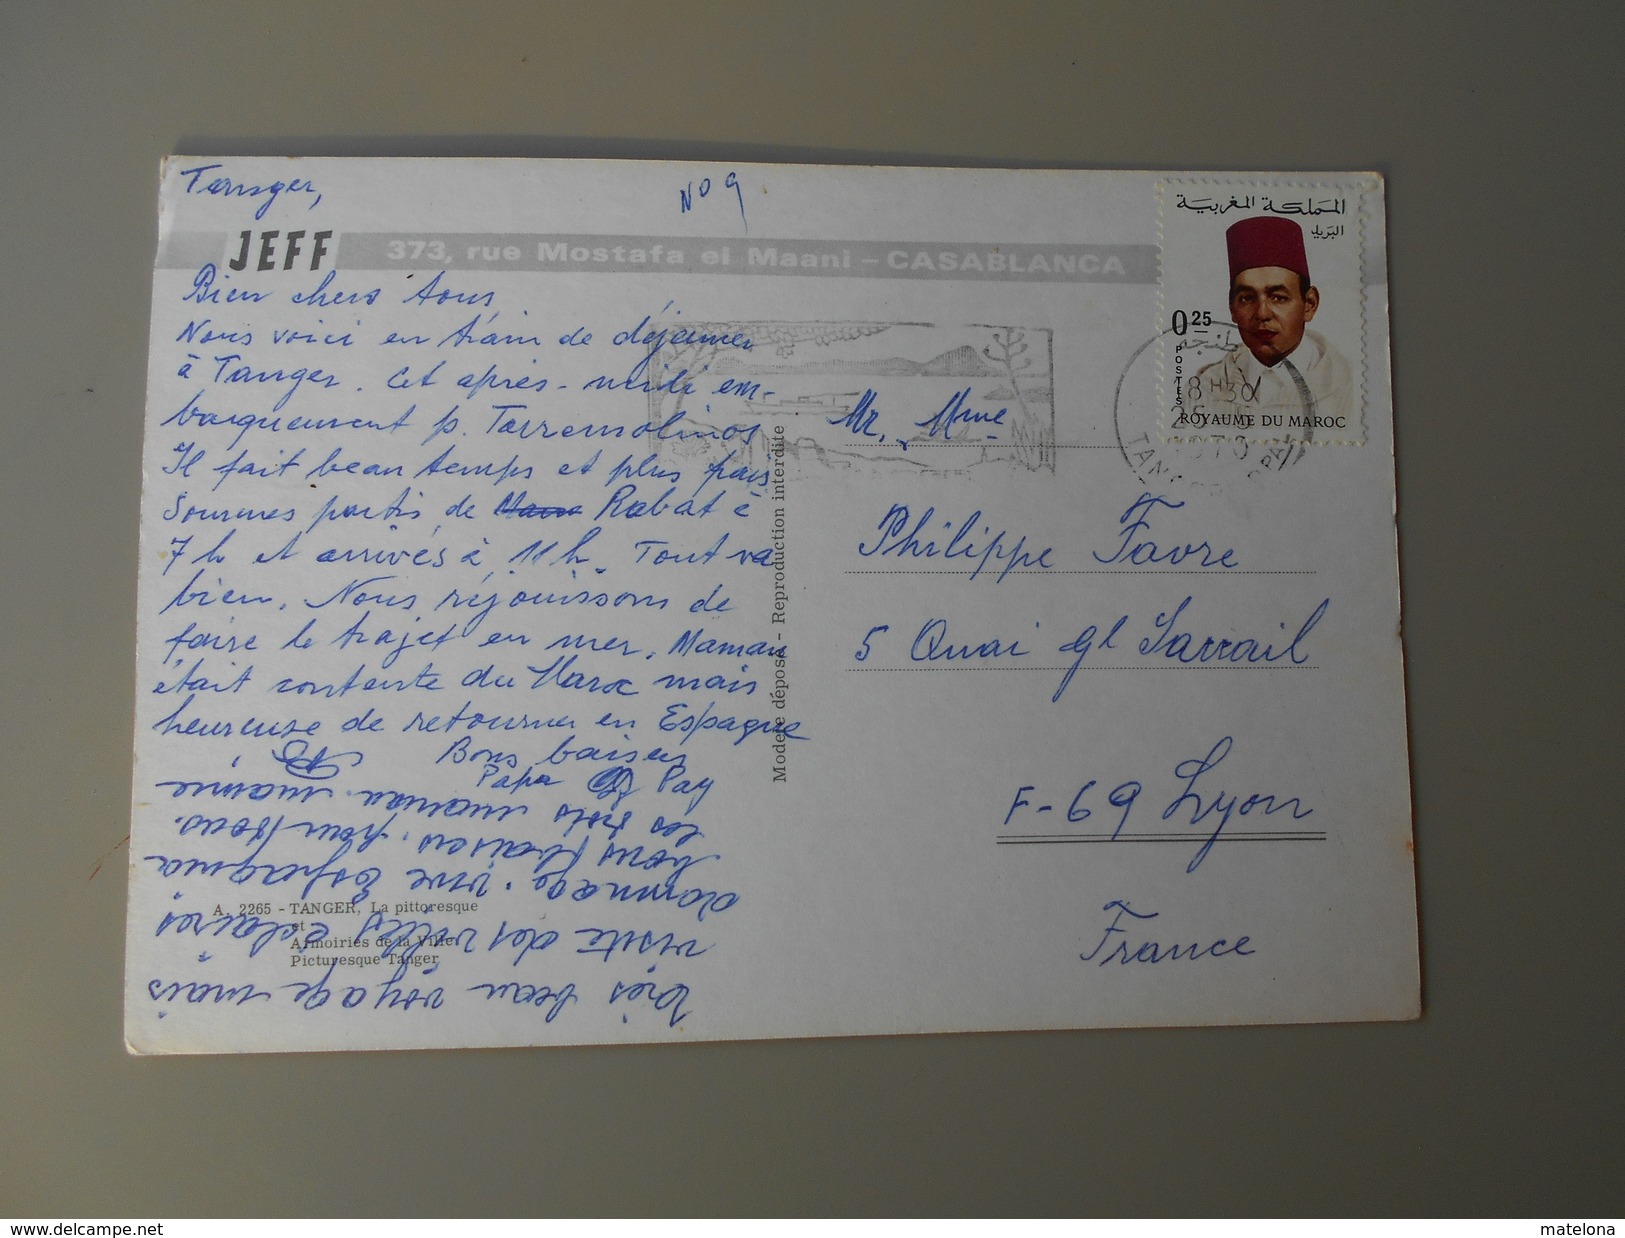 Tanger,
No 9
JEFF 373, rue Mostafa el Maani – CASABLANCA
Bien chers tous
Nous voici en train de déjeuner
à Tanger. Cet après-midi em-
barquement p. Torremolinos
Il fait beau temps et plus frais
Sommes partis de Rabat à
7 h et arrivés à 11 h. Tout va
bien. Nous réjouissons de
faire le trajet en mer. Maman
était contente du Maroc mais
heureuse de retourner en Espagne
Bons baisers
Papa
Très beau voyage mais
visite des villes
vive Espagna
bons baisers, pour vous
les trois maman
A. 2265 - TANGER, La pittoresque
et
Armoiries de la Ville.
Picturesque Tanger
Modèle déposé - Reproduction interdite
المملكة المغربية
البريد
0.25
POSTES
ROYAUME DU MAROC
طنجة
18 H 30
TANGER
Mr, Mme
Philippe Favre
5 Quai Gl Sarrail
F-69 Lyon
France
www.delcampe.net
matelona